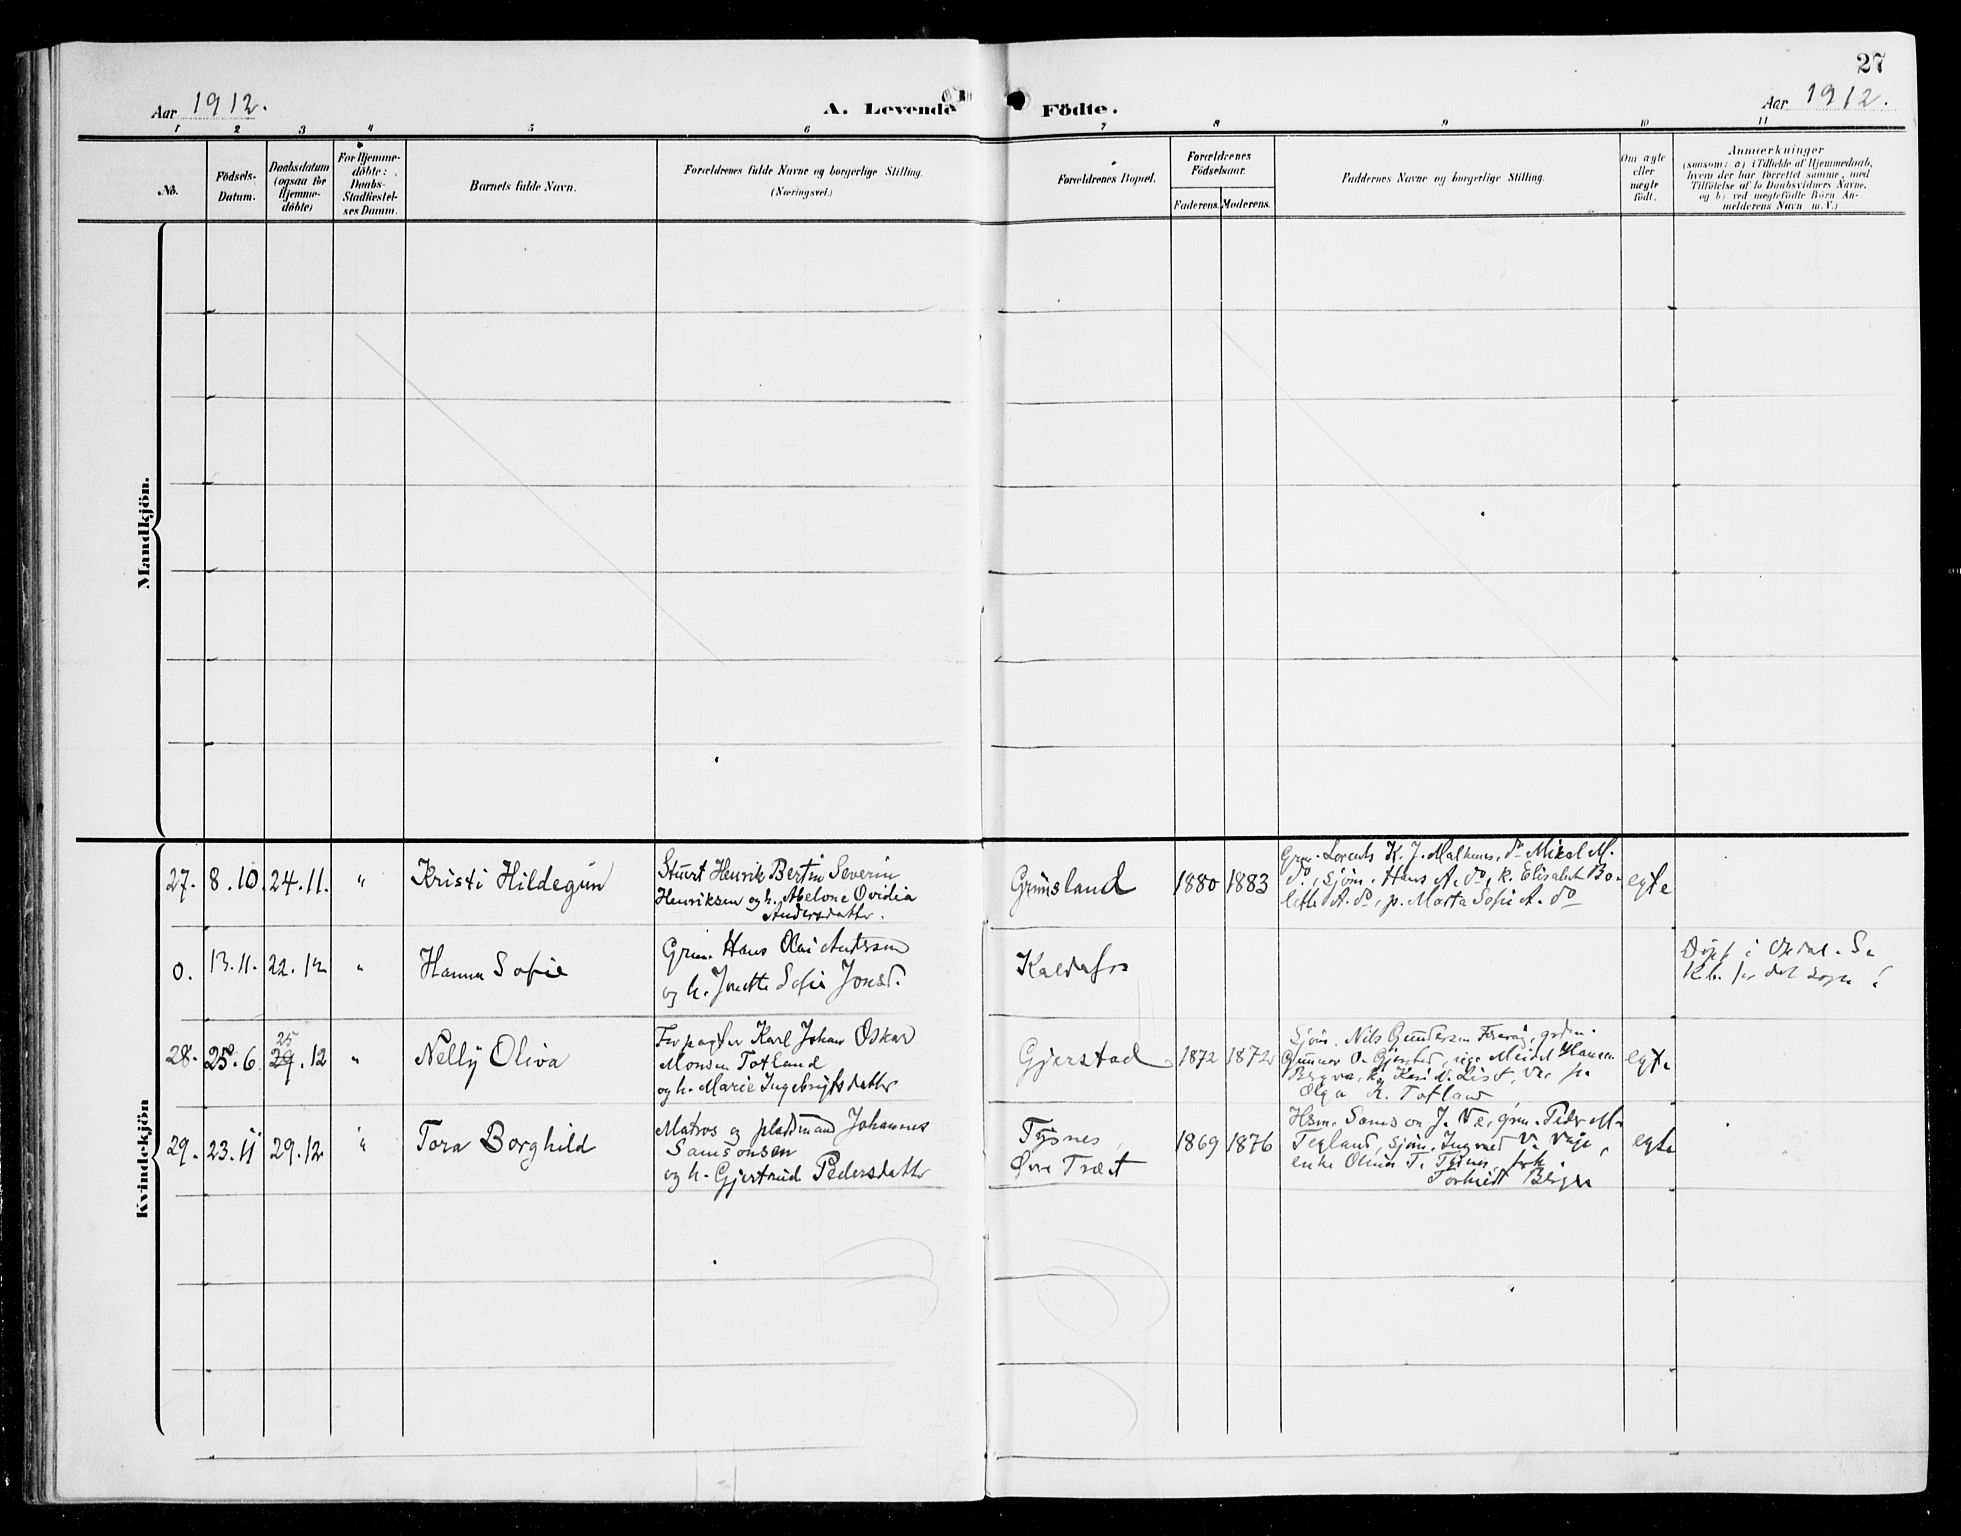 27
Aar 1912.
A. Levende Födte.
Aar 1912.
1 2 3 4 5 6 7 8 9 10 11
No.
Födsels-Datum.
Daabsdatum (ogsaa for Hjemmedöbte)
For Hjemmedöbte: Daabs-Stadfæstelses Datum.
Barnets fulde Navn.
Forældrenes fulde Navne og borgerlige Stilling.
(Næringsvei.)
Forældrenes Bopæl.
Forældrenes Födselsaar.
Faderens. Moderens.
Faddernes Navne og borgerlige Stilling.
Om ægte eller uægte födt.
Anmærkninger
(saasom: a) i Tilfælde af Hjemmedaab,
hvem der har forrettet samme, med
Tilföielse af to Daabsvidners Navne,
og b) ved uægtefödte Börn An-
melderens Navn m. V.)
Mandkjön.
Kvindekjön
27. 8.10. 24.11. " Kristi Hildegun
Stuert Henrik Bertin Severin
Henriksen og h. Abelone Ovidia
Andersdatter.
Grimsland 1880 1883
Grm. Lorents K. J. Malkenes, do Mikal M.
do, sjöm. Hans A. do, k. Elisabet Bo-
lette A. do, p. Marta Sofie A. do
egte
0. 13.11. 22.12 " Hanna Sofie
Grm. Hans Olai Andersen
og h. Jonette Sofie Jonsd.
Kaldafos
Döpt i Opdal. Se
Kb. for det sogn!
28. 25.6 25 29.12 " Nelly Oliva
Forpagter Karl Johan Oskar
Monsen Totland
og h. Marie Ingebrigtsdatter
Gjerstad 1872 1872
Sjöm. Nils Gundersen
Gunnar O. Gjerstad, Hansen
Olga K. Totland
egte
29. 23.11 29.12 " Tora Borghild
Matros og pladsmand Johannes
Samsonsen
og h. Gjertrud Pedersdatter
Tysnes,
Övre Træet
1869 1876
Hsm. Samson J. grm. Peder M.
Tegland, sjöm. Ingvald V.
enke T. Tysnes,
Bergen
egte